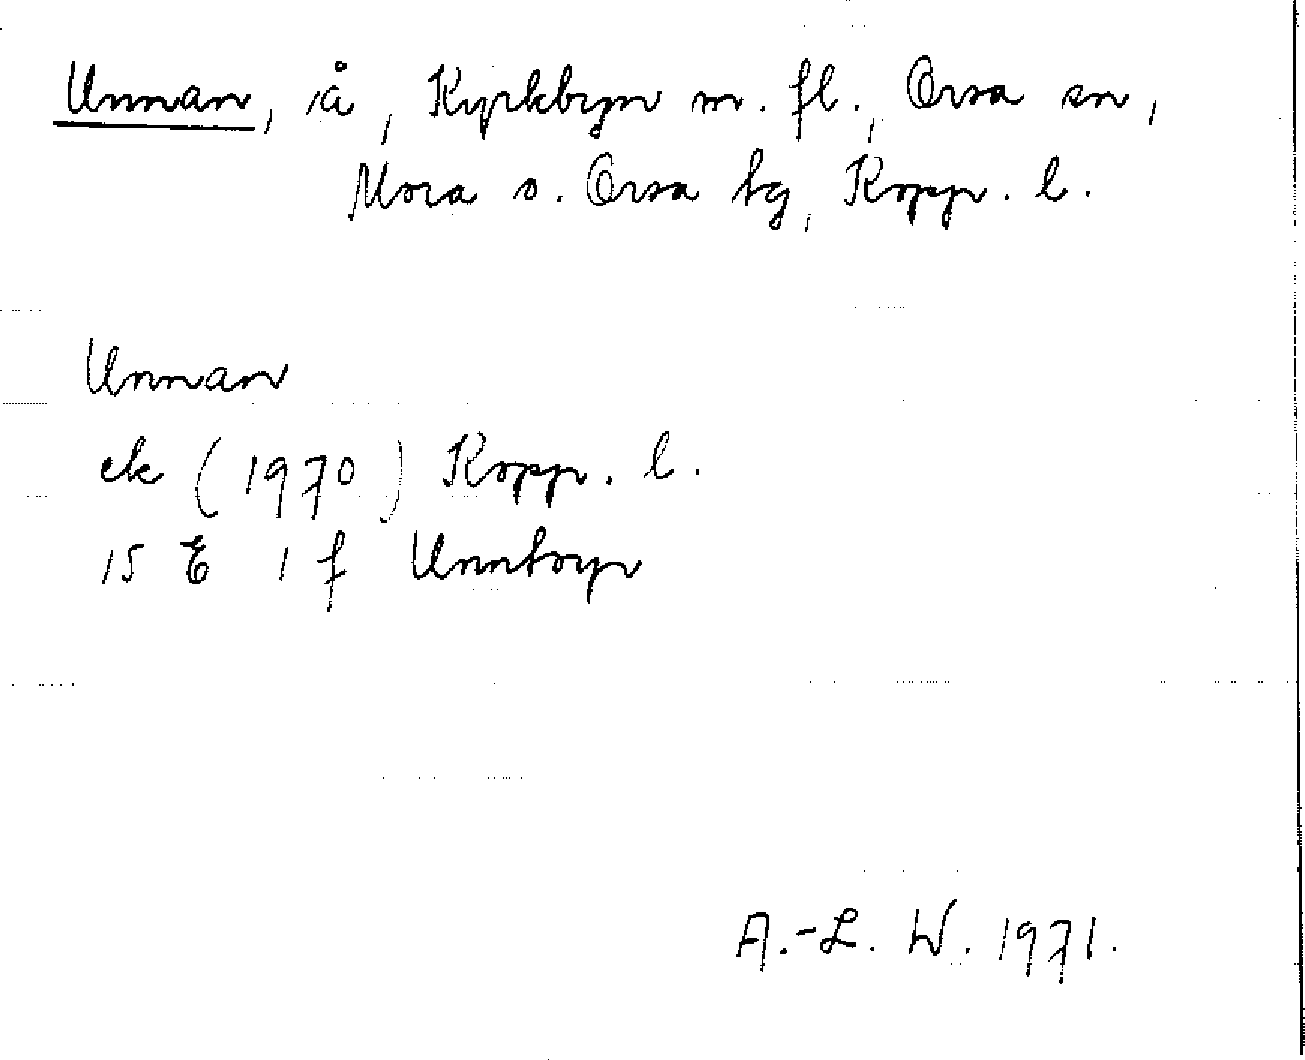 Unnan, å, Kyrkbyn m. fl., Orsa sn,
Mora o. Orsa tg, Kopp. l.
Unnan
ek (1970) Kopp. l.
15 E 1 f Unntorp
A.-L. W. 1971.